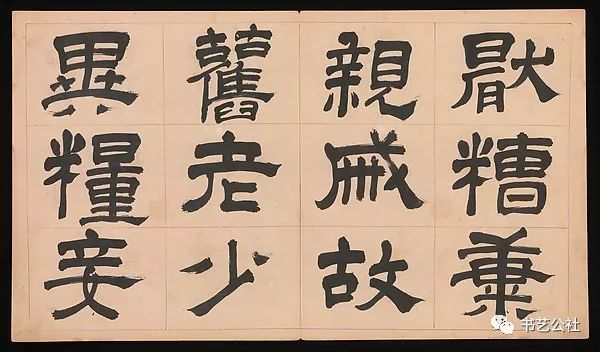 猒糟康
親戚故
舊老少
異糧妾
书艺公社